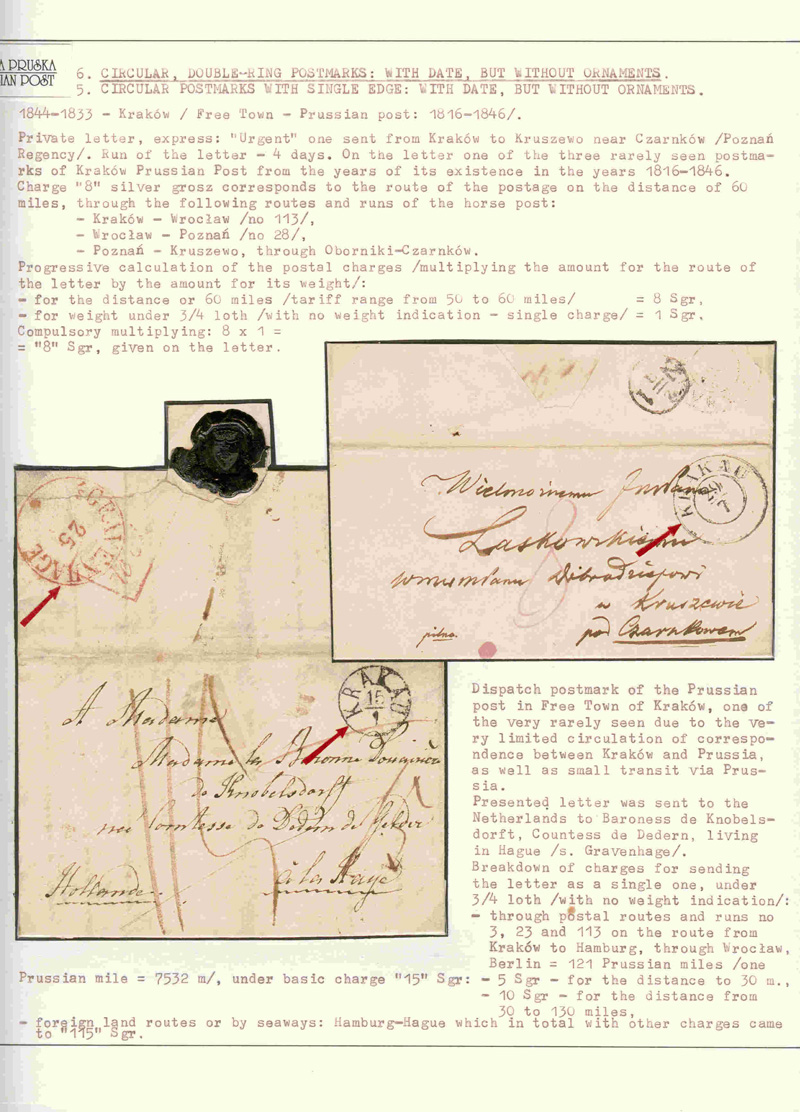 A PRUSKA
IAN POST
6. CIRCULAR, DOUBLE-RING POSTMARKS: WITH DATE, BUT WITHOUT ORNAMENTS.
5. CIRCULAR POSTMARKS WITH SINGLE EDGE: WITH DATE, BUT WITHOUT ORNAMENTS.
1844-1833 - Kraków / Free Town - Prussian post: 1816-1846/.
Private letter, express: "Urgent" one sent from Kraków to Kruszewo near Czarnków /Poznań
Regency/. Run of the letter - 4 days. On the letter one of the three rarely seen postma-
rks of Kraków Prussian Post from the years of its existence in the years 1816-1846.
Charge "8" silver grosz corresponds to the route of the postage on the distance of 60
miles, through the following routes and runs of the horse post:
- Kraków - Wrocław /no 113/,
- Wrocław - Poznań /no 28/,
- Poznań - Kruszewo, through Oborniki-Czarnków.
Progressive calculation of the postal charges /multiplying the amount for the route of
the letter by the amount for its weight/:
- for the distance or 60 miles /tariff range from 50 to 60 miles/ = 8 Sgr,
- for weight under 3/4 loth /with no weight indication - single charge/ = 1 Sgr.
Compulsory multiplying: 8 x 1 =
= "8" Sgr, given on the letter.
KRAKAU
Laskowskiemu
8
w Kruszewie
pod Czarnkowem
pilno.
HAGE
25
KRAKAU
15
1
A Madame
Madame la Baronne Douairière
de Knobelsdorff
née Comtesse de Dedem de Gelder
à la Haye
Hollande
Dispatch postmark of the Prussian
post in Free Town of Kraków, one of
the very rarely seen due to the ve-
ry limited circulation of correspo-
ndence between Kraków and Prussia,
as well as small transit via Prus-
sia.
Presented letter was sent to the
Netherlands to Baroness de Knobels-
dorft, Countess de Dedern, living
in Hague /s. Gravenhage/.
Breakdown of charges for sending
the letter as a single one, under
3/4 loth /with no weight indication/:
- through postal routes and runs no
3, 23 and 113 on the route from
Kraków to Hamburg, through Wrocław,
Berlin = 121 Prussian miles /one
Prussian mile = 7532 m/, under basic charge "15" Sgr: - 5 Sgr - for the distance to 30 m.,
- 10 Sgr - for the distance from
30 to 130 miles,
- foreign land routes or by seaways: Hamburg-Hague which in total with other charges came
to "115" Sgr.